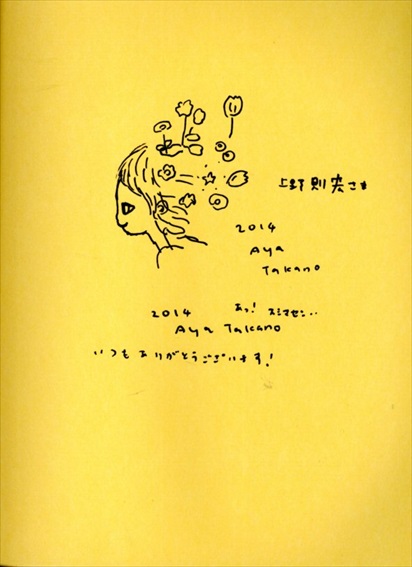 上野則宏さま
2014
Aya
Takano
2014 あっ! スミマセン..
Aya Takano
いつもありがとうございます!